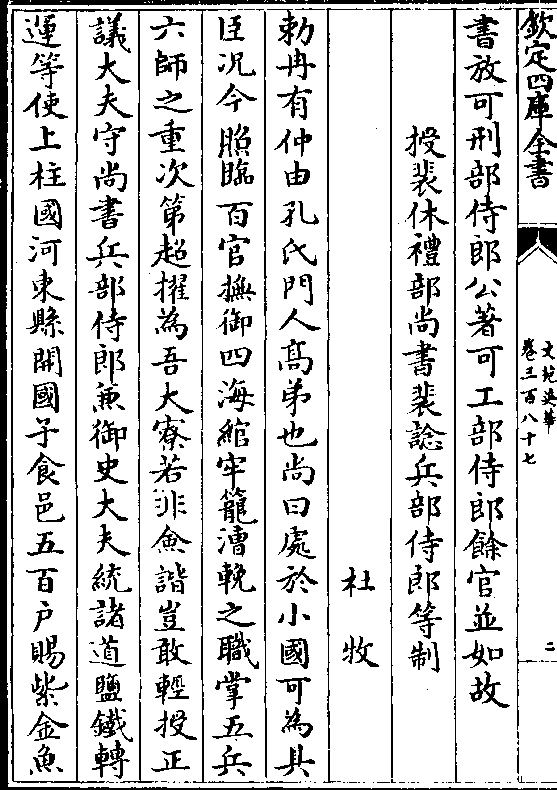 欽定四庫全書
文苑英華
卷三百八十七
二
書放可刑部侍郎公著可工部侍郎餘官並如故
授裴休禮部尚書裴諗兵部侍郎等制
杜牧
勅冉有仲由孔氏門人髙弟也尚曰處於小國可為具
臣况今照臨百官撫御四海綰牢籠漕輓之職掌五兵
六師之重次第超擢為吾大寮若非僉諧豈敢輕授正
議大夫守尚書兵部侍郎兼御史大夫統諸道鹽鐵轉
運等使上柱國河東縣開國子食邑五百户賜紫金魚